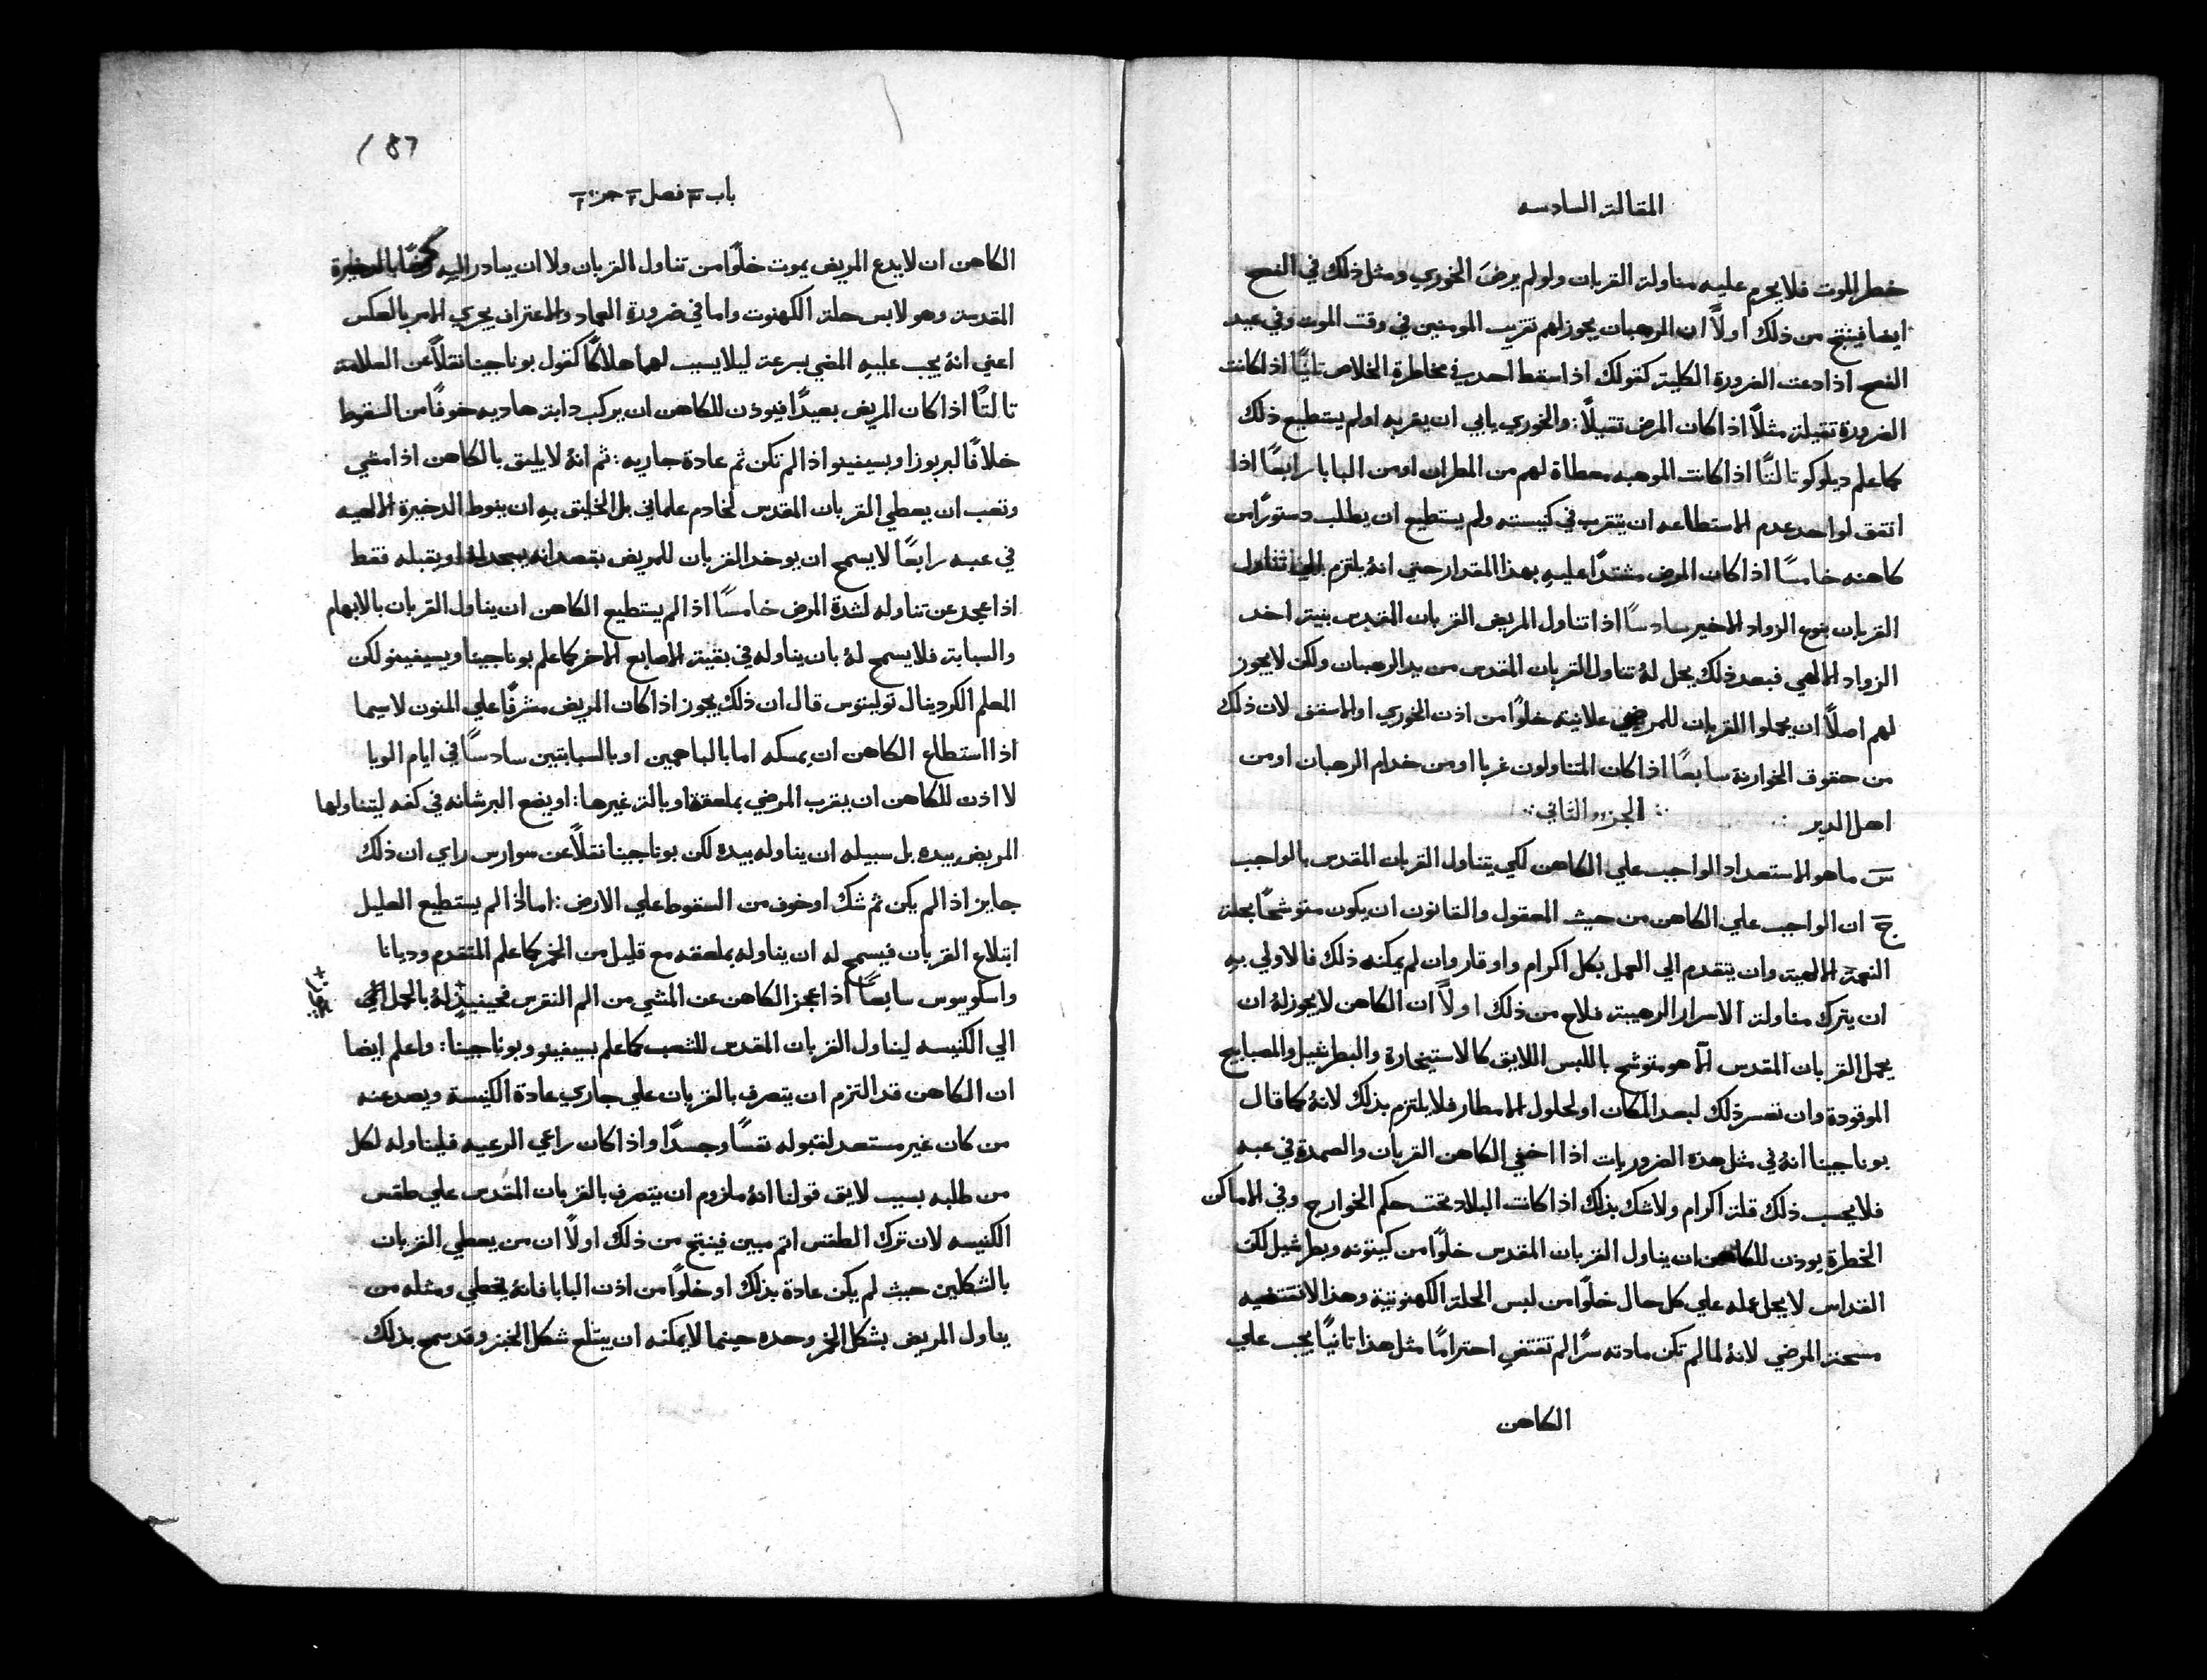 المقالة السادسه
خطر الموت فلا يحرم عليه مناولة القربان ولو لم يرضَ الخوري ومثل ذلك في الفصح
ايضا فينتج من ذلك اولاً ان الرهبان يجوز لهم تقريب المومنين في وقت الموت وفي عيد
الفصح اذا دعت الضرورة الكلية كقولك اذا سقط احد في مخاطرة الخلاص ثانيًا اذا كانت
الضرورة ثقيلة مثلًا اذا كان المرض ثقيلًا: والخوري يابي ان يقربه او لم يستطيع ذلك
كما علم ديلوكو ثالثًا اذا كانت الموهبه معطاة لهم من المطران او من البابا رابعًا اذا
اتفق لواحد عدم الاستطاعه ان يتقرب في كنيسته ولم يستطيع ان يطلب دستورًا من
كاهنه خامسًا اذا كان المرض مشتدًا عليه بهذا المقدار حتي انهُ يلتزم الي تناول
القربان بنوع الزواد الاخير سادسًا اذا تناول المريض القربان المقدس بنية اخد
الزواد الالهي فبعد ذلك يحل لهُ تناول القربان المقدس من يد الرهبان ولكن لا يجوز
لهم اصلًا ان يحملوا القربان للمرضي علانية خلوًا من اذن الخوري او الاسقف لان ذلك
من حقوق الخوارنة سابعًا اذا كان المتناولون غربا او من خدام الرهبان او من
اهل الدير :. :. الجزو الثاني :.
سَ ما هو الاستعداد الواجب علي الكاهن لكي يتناول القربان المقدس بالواجب
جَ ان الواجب علي الكاهن من حيث المعقول والقانون ان يكون متوشحًا بحلة
النعمة الالهية وان يتقدم الي العمل بكل اكرام واوقار وان لم يمكنه ذلك فالاولي بهِ
ان يترك مناولة الاسرار الرهيبة فلاح من ذلك اولاً ان الكاهن لا يجوز لهُ ان
يحمل القربان المقدس الّا هو متوشح باللبس اللايق كالاستيخارة والبطرشيل والمصابيح
الموقودة وان تعسر ذلك لبعد المكان او لحلول الامطار فلا يلتزم بذلك لانهُ كما قال
بوناجينا انهُ في مثل هذه الضروريات اذا اخفي الكاهن القربان والصمدة في عبه
فلا يحسب ذلك قلة اكرام ولا شك بذلك اذا كانت البلاد تحت حكم الخوارج وفي الاماكن
الخطرة يوذن للكاهن ان يناول القربان المقدس خلوًا من كيتونه وبطرشيل لكن
القداس لا يحل عمله علي كل حال خلوًا من لبس الحلة الكهنوتية وهذا لا تقتضيه
مسحة المرضي لانهُ لما لم تكن مادته سرًا لم تقتضي احترامًا مثل هذا ثانيًا يجب علي
الكاهن
187
باب ٣ فصل ٢ جزء ٢
الكاهن ان لا يدع المريض يموت خلوًا من تناول القربان ولا ان يبادر اليه بالدخيرة
المقدسة وهو لابس حلة الكهنوت واما في ضرورة العماد والاعتراف يجري الامر بالعكس
اعني انهُ يجب عليهِ المضي بسرعة ليلا يسبب لهما هلاكًا كقول بوناجينا نقلاً عن العلامة
ثالثًا اذا كان المريض بعيدًا فيوذن للكاهن ان يركب دابة هاديه خوفًا من السقوط
خلافًا لبربوزا وبسيفينو اذا لم تكن ثم عادة جاريه: ثم انهُ لا يليق بالكاهن اذا مشي
وتعب ان يعطي القربان المقدس لخادم علماني بل الخليق بهِ ان ينوط الدخيرة الالهيه
في عبه رابعًا لا يسمح ان يوخد القربان للمريض بقصد انه يسجد لهُ او يقبله فقط
اذا عجز عن تناوله لشدة المرض خامسًا اذا لم يستطيع الكاهن ان يناول القربان بالابهام
والسبابة فلا يسمح لهُ بان يناوله في بقية الاصابع الاخر كما علم بوناجينا وبسيفينو لكن
المعلم الكردينال توليتوس قال ان ذلك يجوز اذا كان المريض مشرفًا علي المنون لا سيما
اذا استطاع الكاهن ان يمسكه اما بالباهمين او بالسبابتين سادسًا في ايام الوبا
لا اذن للكاهن ان يقرب المرضي بملعقة او بالة غيرها: او يضع البرشانه في كفه ليتناولها
المريض بيده بل سبيله ان يناوله بيده لكن بوناجينا نقلًا عن سوارس راي ان ذلك
جايز اذا لم يكن ثم شك او خوف من السقوط علي الارض: اما اذا لم يستطيع العليل
ابتلاع القربان فيسمح له ان يناوله بملعقه مع قليل من الخمر كما علم المتقدم وديانا
واسكوبيوس سابعًا اذا عجز الكاهن عن المشي من الم النقرس فحينيذٍ لهُ بالحمل
الي الكنيسه ليناول القربان المقدس للشعب كما علم بسيفينو وبوناجينا: واعلم ايضا
ان الكاهن قد التزم ان يتصرف بالقربان علي جاري عادة الكنيسة ويصد عنه
من كان غير مستعد لقبوله نفسًا وجسدًا واذا كان راعي الرعيه فليناوله لكل
من طلبه بسبب لايق قولنا انهُ ملزوم ان يتصرف بالقربان المقدس علي طقس
الكنيسه لان ترك الطقس اثم مبين فينتج من ذلك اولاً ان من يعطي القربان
بالشكلين حيث لم يكن عادة بذلك او خلوًا من اذن البابا فانهُ يخطي ومثله من
يناول المريض بشكل الخمر وحده حينما لا يمكنه ان يبتلع شكل الخبز وقد سمح بذلك